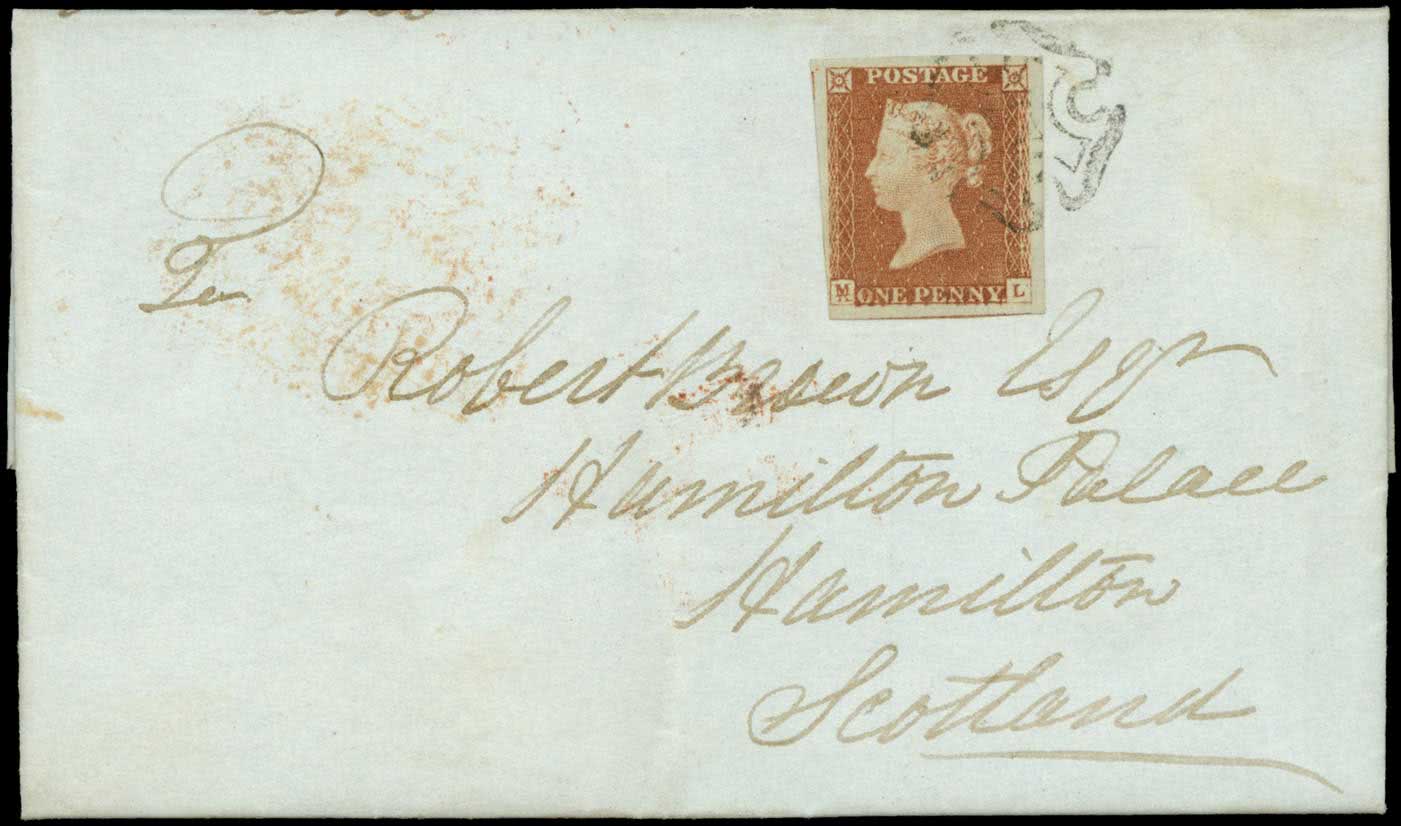 POSTAGE
M ONE PENNY L
To
Robert Esqr
Hamilton Palace
Hamilton
Scotland